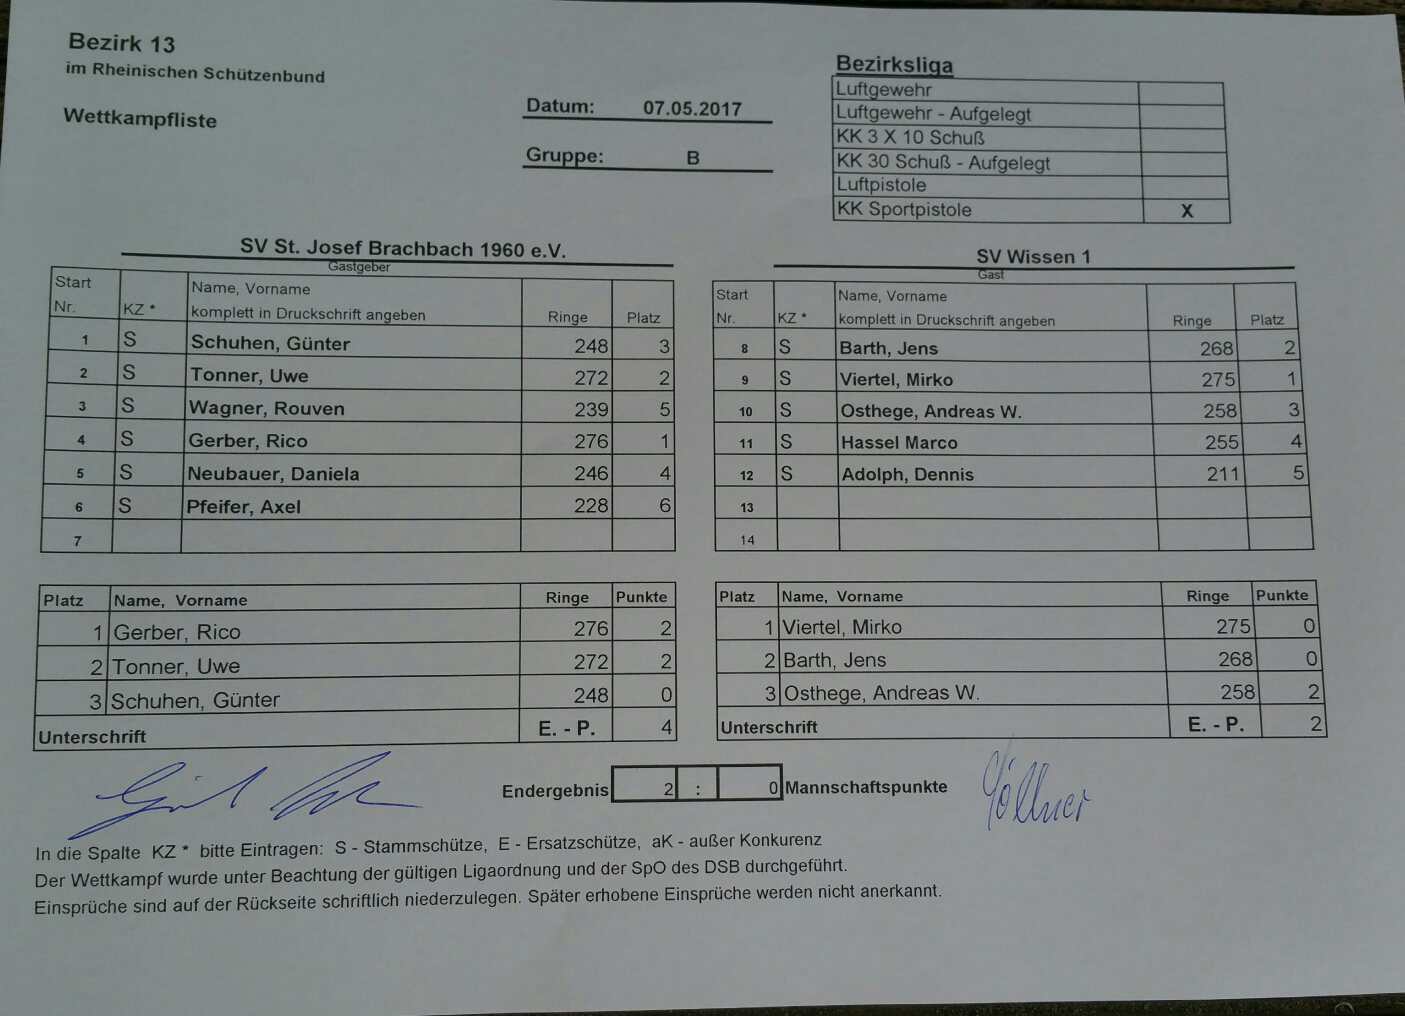 Bezirk 13
im Rheinischen Schützenbund
Wettkampfliste
Datum: 07.05.2017
Gruppe: B
Bezirksliga
Luftgewehr
Luftgewehr - Aufgelegt
KK 3 X 10 Schuß
KK 30 Schuß - Aufgelegt
Luftpistole
KK Sportpistole X
SV St. Josef Brachbach 1960 e.V.
Gastgeber
Start Nr. KZ * Name, Vorname komplett in Druckschrift angeben Ringe Platz
1 S Schuhen, Günter 248 3
2 S Tonner, Uwe 272 2
3 S Wagner, Rouven 239 5
4 S Gerber, Rico 276 1
5 S Neubauer, Daniela 246 4
6 S Pfeifer, Axel 228 6
7
SV Wissen 1
Gast
Start Nr. KZ * Name, Vorname komplett in Druckschrift angeben Ringe Platz
8 S Barth, Jens 268 2
9 S Viertel, Mirko 275 1
10 S Osthege, Andreas W. 258 3
11 S Hassel Marco 255 4
12 S Adolph, Dennis 211 5
13
14
Platz Name, Vorname Ringe Punkte
1 Gerber, Rico 276 2
2 Tonner, Uwe 272 2
3 Schuhen, Günter 248 0
Unterschrift E. - P. 4
Platz Name, Vorname Ringe Punkte
1 Viertel, Mirko 275 0
2 Barth, Jens 268 0
3 Osthege, Andreas W. 258 2
Unterschrift E. - P. 2
Endergebnis 2 : 0 Mannschaftspunkte
In die Spalte KZ * bitte Eintragen: S - Stammschütze, E - Ersatzschütze, aK - außer Konkurenz
Der Wettkampf wurde unter Beachtung der gültigen Ligaordnung und der SpO des DSB durchgeführt.
Einsprüche sind auf der Rückseite schriftlich niederzulegen. Später erhobene Einsprüche werden nicht anerkannt.